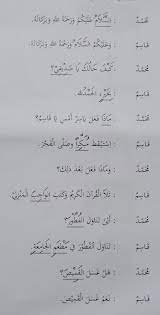 مُحَمَّدٌ : السَّلَامُ عَلَيْكُمْ وَرَحْمَةُ اللهِ وَبَرَكَاتُهُ.
قَاسِمٌ : وَعَلَيْكُمُ السَّلَامُ وَرَحْمَةُ اللهِ وَبَرَكَاتُهُ.
مُحَمَّدٌ : كَيْفَ حَالُكَ يَا صَدِيْقِيْ؟
قَاسِمٌ : بِخَيْرٍ، الْحَمْدُ لِلهِ.
مُحَمَّدٌ : مَاذَا فَعَلَ نَاصِرٌ أَمْسِ يَا قَاسِمُ؟
قَاسِمٌ : اسْتَيْقَظَ مُبَكِّرًا وَصَلَّى الْفَجْرَ.
مُحَمَّدٌ : وَمَاذَا فَعَلَ بَعْدَ ذَلِكَ؟
قَاسِمٌ : تَلَا الْقُرْآنَ الْكَرِيْمَ وَكَتَبَ الْوَاجِبَ الْمَنْزِلِيَّ.
مُحَمَّدٌ : أَيْنَ تَنَاوَلَ الْفُطُوْرَ؟
قَاسِمٌ : تَنَاوَلَ الْفُطُوْرَ فِيْ مَطْعَمِ الْجَامِعَةِ.
مُحَمَّدٌ : هَلْ غَسَلَ الْقَمِيْصَ؟
قَاسِمٌ : نَعَمْ غَسَلَ الْقَمِيْصَ.